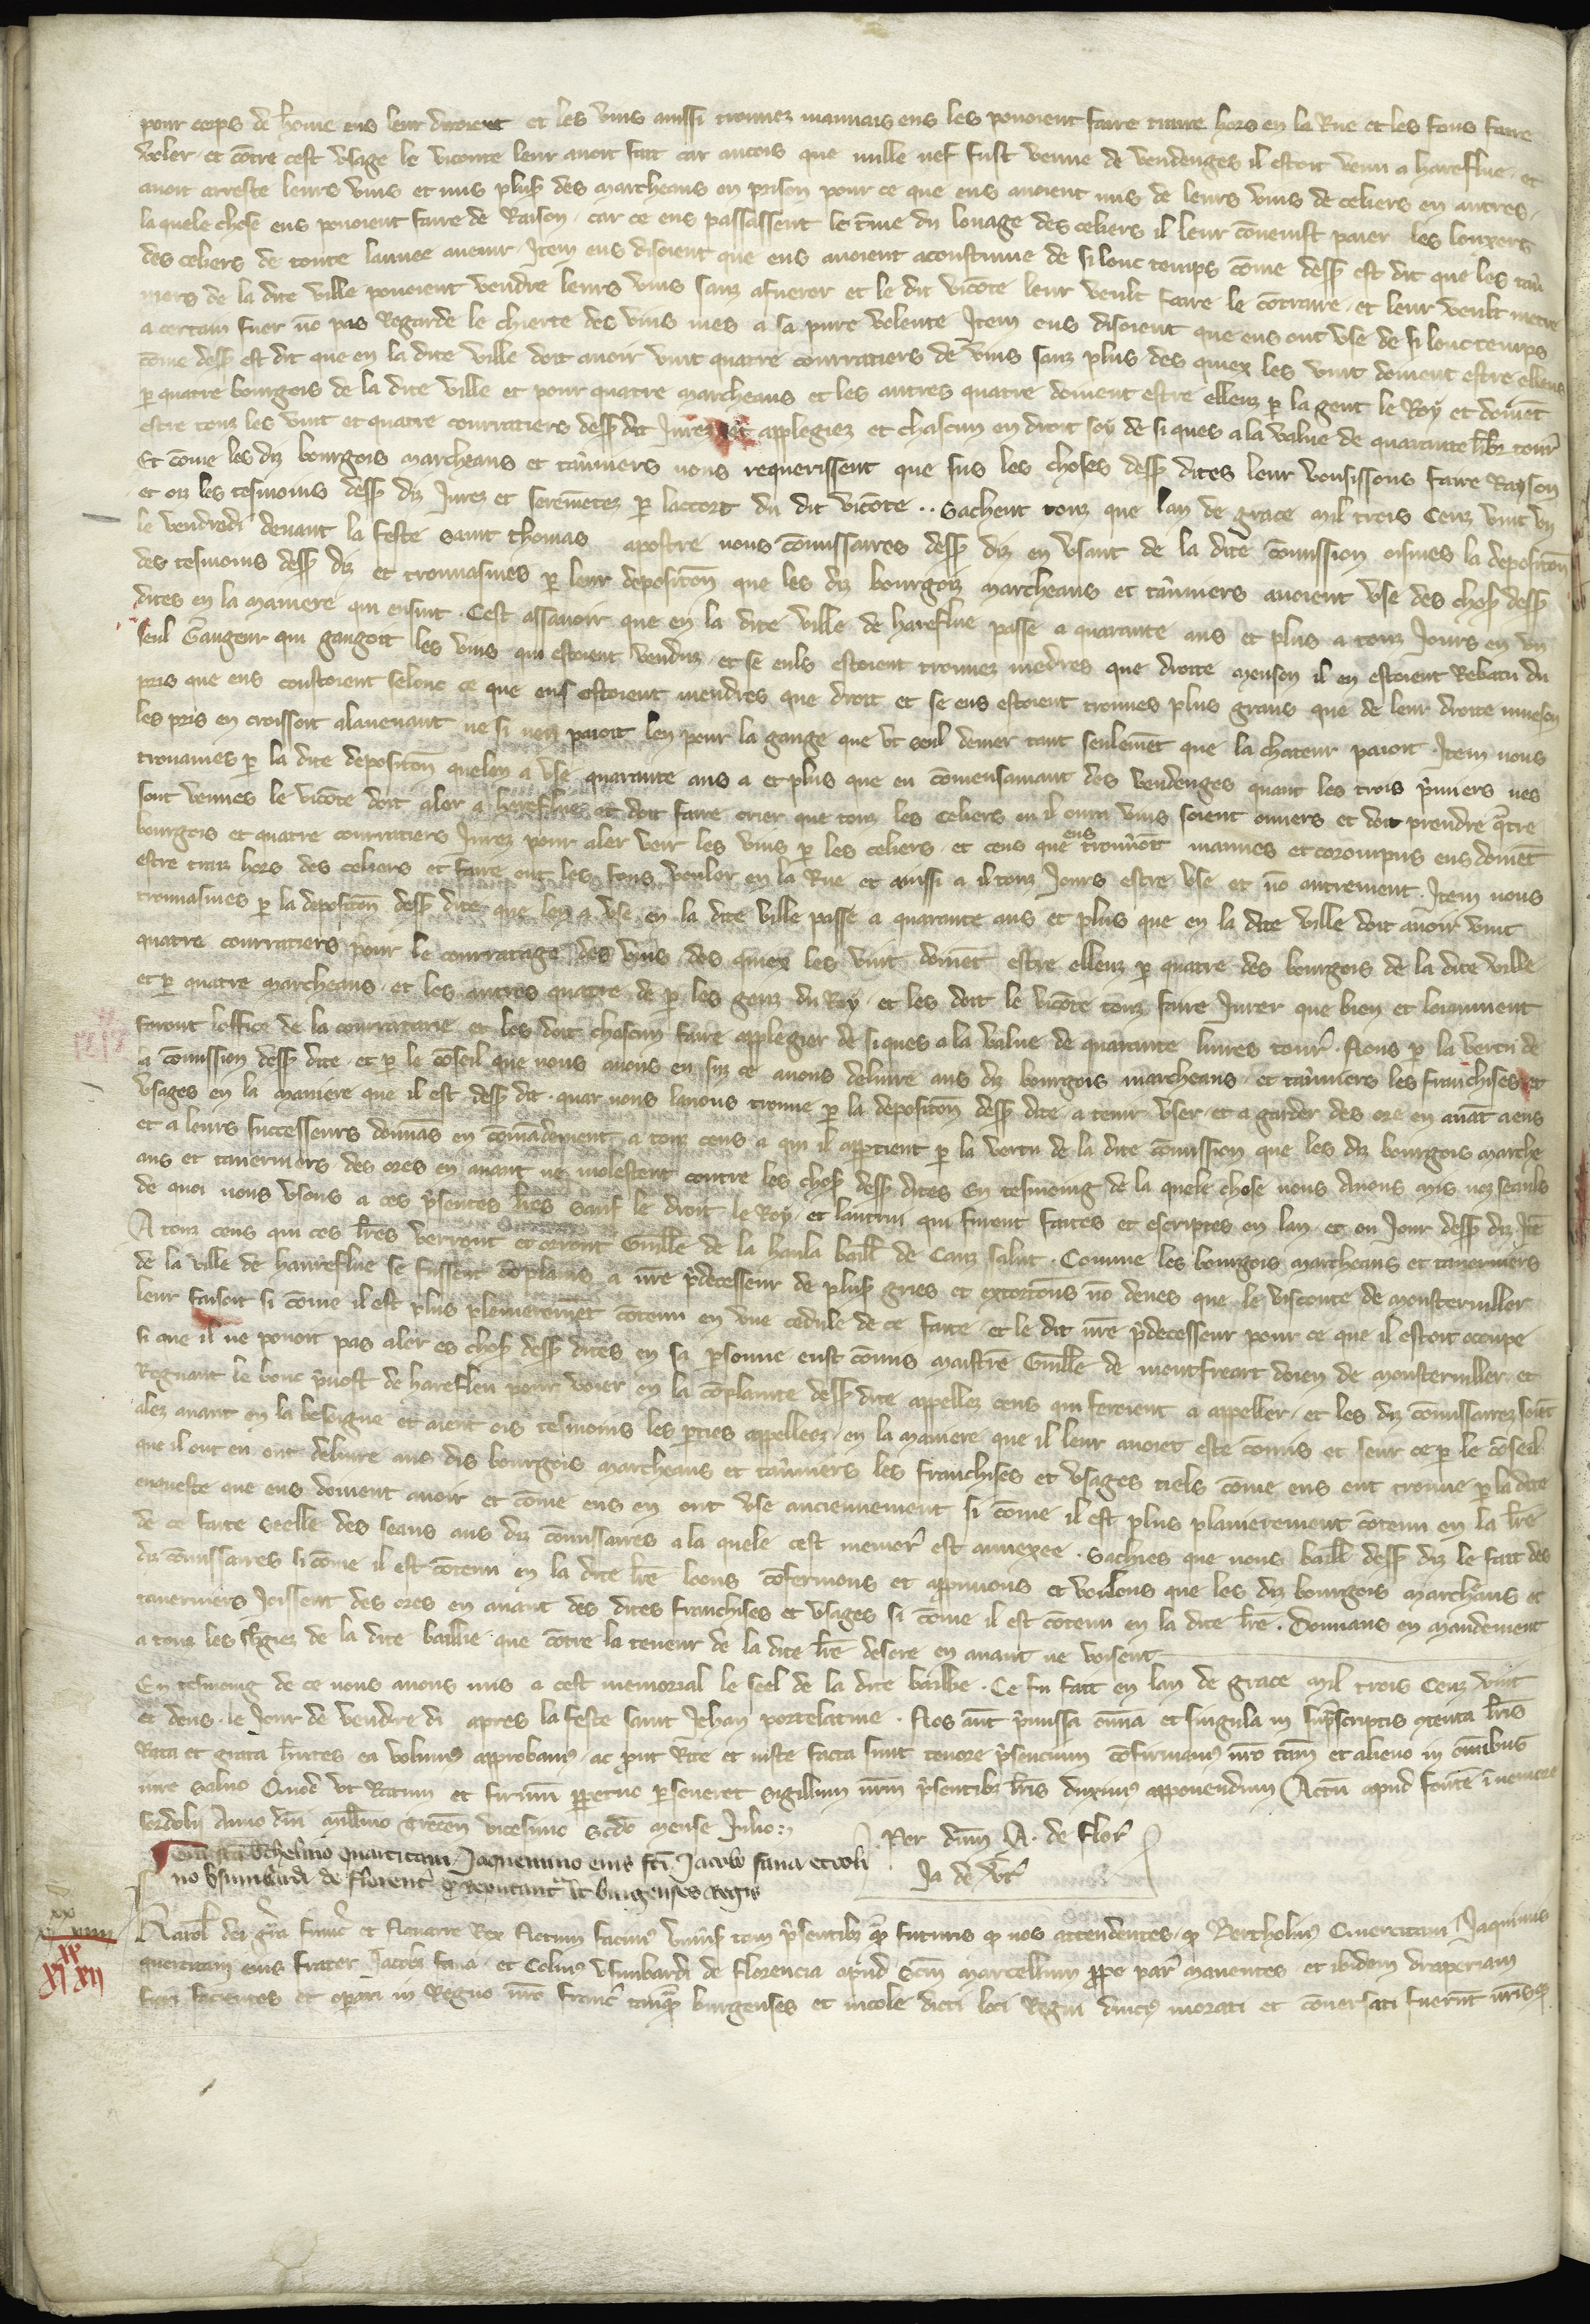 pour corps de home eus leur diroient et les vins aussi trouuez mauuais eus les pouoient faire traire hors en la Rue et les fons faire
voler . et cōtre cest vsage le viconte leur auoit fait car aucois que nulle nef fust venue de vendenges il estoit venu a hareflue . et
auoit arreste leurs vins et mis plus des marcheans en prison pour ce que eus auoient mis de leurs vins de celiers en autres .
la quele chose eus pouoient faire de Raison . car ce eus passassent le tme du louage des celiers il leur cōuenist paier les louyers
des celiers de toute lannee auenir Item eus disoient que eus auoient acoustume de si lonc temps cōme dess est dit que les tau
niers de la dite ville pouoient vendre leurs vins sanz afuerer et le dit vicōte leur veult faire le cōtraire . et leur veult metre
a certain fuer nō pas Regarde le chierte des vins mes a sa pure volente Item eus disoient que eus ont vse de si lonc temps
cōme dess est dit que en la dite ville doit auoir vint quatre courratiers de vins sanz plus des quiex les vint doiuent estre elleuz
p quatre bourgois de la dite ville et pour quatre marcheans et les autres quatre doiuent estre elleuz p la gent le Roy et doiuēt
estre touz les vint et quatre courratiers dess dit Jurez et applegiez et chascun en droit soy de si ques a la value de quarante libr tour
Et cōme les diz bourgois marcheans et tauniers nous requerissent que sus les choses dess dites leur vousissons faire Rayson
et oiz les tesmoins dess diz Jurez et seremētez p laccort du dit vicōte .. Sachent touz que lan de grace mil trois Cenz vint vn
le vendredi deuant la feste saint thomas apostre nous cōmissaires dess diz en vsant de la dite cōmission oismes la depositōn
des tesmoins dess diz et trouuasmes p leur depositōn que les diz bourgoiz marcheans et tauniers auoient vse des chos dess
dites en la maniere qui ensuit . Cest assauoir que en la dite ville de hareflue passe a quarante ans et plus a touz Jours eu vn
seul Gaugeur qui gaugoit les vins qui estoient venduz . et se euls estoient trouuez mēdres que droite meuson il en estoient Rebatu du
pris que eus coustoient selonc ce que eus estoient mendres que droit et se eus estoient trouues plus grans que de leur droite mueson
les pris en croissoit alauenant ne si nen paioit len pour la gauge que vt seul denier tant seulemēt que la chateur paioit . Item nous
trouames p la dite depositōn quelen a vse quarante ans a et plus que en cōmensamant des vendenges quant les trois pmiers nes
sont venues le vicōte doit aler a harefluee et doit faire crier que touz les celiers ou il aura vins soient ouuers et doit prendre qtre
bourgois et quatre courratiers Jurez pour aler veir les vins p les celiers . et ceus que eus trouuēt mauues et corompus eus doiuēt
estre traiz hors des celiers et faire ent les fons voler en la Rue et ainssi a il touz Jours estre vse et nō autrement . Item nous
trouuasmes p la depositōn dess dite que len a vse en la dite ville passe a quarante ans et plus que en la dite ville doit auoir vint
quatre courratiers pour le courratage des vins des quiex les vint doiuēt estre elleuz p quatre des bourgois de la dite ville
et p quatre marcheans . et les autres quatre de p les genz du Roy . et les doit le vicōte touz faire Jurer que bien et loiaument
feront loffice de la courratarie et les doit chascun faire applegier de si ques a la value de quarante liures tour . Nous p la vertu de
la cōmission dess dite . et p le cōseil que nous auons eu suz ce auons deliure aus diz bourgois marcheans . et tauniers les franchises et
vsages en la maniere que il est dess dit . quar nous lauons trouue p la depositōn dess dite . a tenir vser . et a garder des ore en auāt a eus
et a leurs successeurs donnās en cōmādement a touz ceus a qui il apptient p la vertu de la dite cōmission que les diz bourgois marche
ans et tauerniers des ores en auant ne molestent contre les chos dess dites En tesmoing de la quele chose nous Auons mis noz seauls
de quoi nous vsons a ces psentes lres sauf le droit le Roy . et lautrui qui furent faites et escriptes en lan . et ou Jour dess diz Itē
A touz ceus qui ces lres verront et orront Guille de la haula baill de Caux salut . Comme les bourgois marcheans et tauerniers
de la ville de harreflue se fussent cōplains a nre pdecesseur de plus gries et extorcōns nō deues que le visconte de monsteruiller
leur faisoit si cōme il est plus plenieremēt cōtenu en vne cedule de ce faite . et le dit nre pdecesseur pour ce que il estoit ocoupe
si que il ne pouoit pas aler es chos dess dites en sa psonne eust cōmis maistre Guille de montfreart doien de monsteruiller et
Regnaut le bonc puost de harefleu pour voier en la cōplainte dess dite appellez ceus qui seroient a appeller . et les diz cōmissairez soiēt
alez auant en la besoigne et aient ois tesmoins les pties appelleez . en la maniere que il leur auoiet este cōmis et seur ce p le cōseil
que il ont eu ont deliure aus dis bourgois marcheans et tauniers les franchises et vsages tiels cōme eus ont trouue p la dite
enqueste que eus doiuent auoir et cōme eus en ont vse anciennement si cōme il est plus planierement cōtenu en la lre
de ce faite seelle des seaus aus diz cōmissaires a la quele cest memor est annexee . Sachies que nous baill dess diz le fait des
diz cōmissaires si cōme il est cōtenu en la dite lre loons cōfermons et appruuons et voulons que les diz bourgois marchans et
tauerniers Joissent des ores en auant des dites franchises et vsages si cōme il est cōtenu en la dite lre . Donnans en mandement
a touz les sbgiez de la dite baillie que cōtre la teneur de la dite lre desore en auant ne voisent
En tesmoing de ce nous auons mis a cest memorial le seel de la dite baillie . Ce fu fait en lan de grace mil trois Cenz vint
et deus . le Jour de vendredi apres la feste saint Jehan portelatine . Nos aūt pmissa omīa et singula in supscriptis contenta lris
Rata et grata hntes ea volum approbam . ac put Rite et iuste facta sunt tenore psencium cōfirmam nro tam et alieno in omībus
iure saluo Quod vt Ratum et firmū ppetuo pseueret sigillum nrm psentibz lris duxim apponendum Actū apud fontē in nemore
Anno dnī millmo Trecen vicesimo scdo mense Julio
Per dnm A. de flor
Ja de vt
Jaquemino eius fri Jacobo
de florent reputant burgenses Regis
Karol dei gra franc et Nauarre Rex Notum facim vniūs tam psentibz qm futuris q nos attendentes q Bertholin Quercitani Jaquinus
quercitani eius frater Jacobi fana et Colin vsimbardi de florencia apud scm marcellum ppe par manentes et ibidem draperiam
suam facientes et opari in Regno nro franc tanqm burgenses et incole dicti loci Regni diuci morati et cōuersati fuerint nrisq